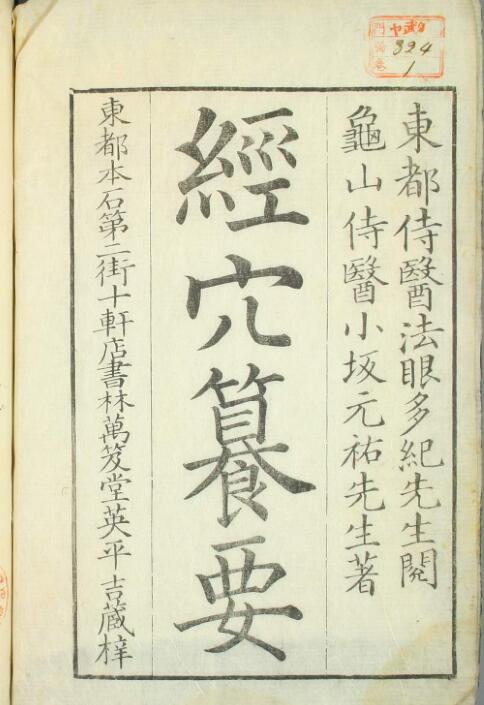 東都侍醫法眼多紀先生閱
龜山侍醫小坂元祐先生著
經穴纂要
東都本石第二街十軒店書林萬笈堂英平吉藏梓
394
1